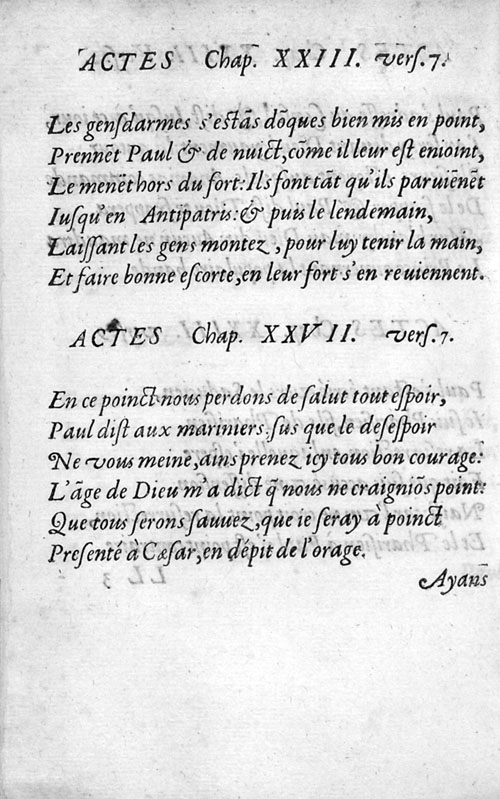 ACTES Chap. XXIII. vers. 7.
Les gensdarmes s'estãs dõques bien mis en point,
Prennẽt Paul & de nuict, cõme il leur est enioint,
Le menẽt hors du fort: Ils font tãt qu'ils paruiẽnẽt
Iusqu'en Antipatris: & puis le lendemain,
Laissant les gens montez, pour luy tenir la main,
Et faire bonne escorte, en leur fort s'en reuiennent.
ACTES Chap. XXVII. vers. 7.
En ce poinct nous perdons de salut tout espoir,
Paul dist aux mariniers: sus que le desespoir
Ne vous meine, ains prenez icy tous bon courage:
L'ãge de Dieu m'a dict q̃ nous ne craigniõs point:
Que tous serons sauuez, que ie seray à poinct
Presenté à Cæsar, en dépit de l'orage.
Ayans